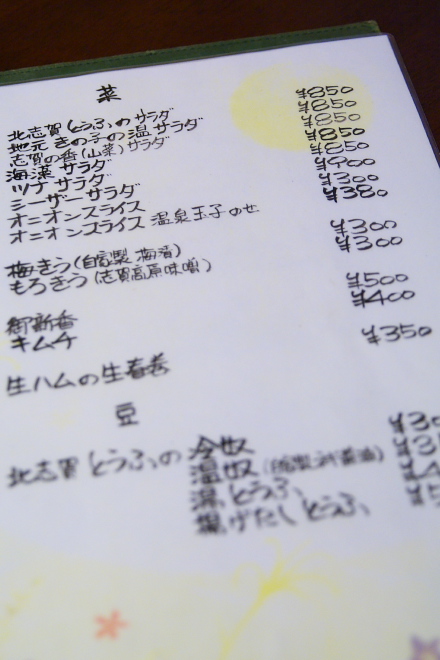 菜
北志賀とうふのサラダ ¥850
地元きの子の温サラダ ¥850
志賀の香(山菜)サラダ ¥850
海藻サラダ ¥850
ツナサラダ ¥850
シーザーサラダ ¥900
オニオンスライス ¥300
オニオンスライス 温泉玉子のせ ¥380
梅きう(自家製 梅漬) ¥300
もろきう(志賀高原味噌) ¥300
御新香 ¥500
キムチ ¥400
生ハムの生春巻 ¥350
豆
北志賀とうふの冷奴 ¥30
温奴
湯とうふ
揚げだしとうふ